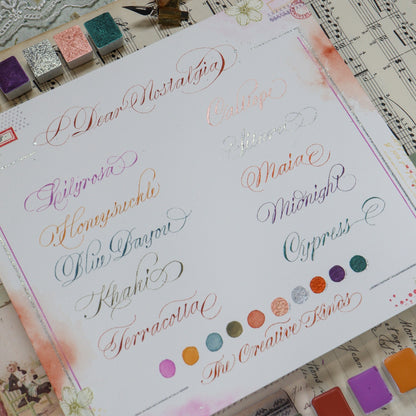 Dear Nostalgia
Lilyrosa
Honeysuckle
Blue Bayou
Khaki
Terracotta
Calliope
Maia
Midnight
Cypress
The Creative Kings